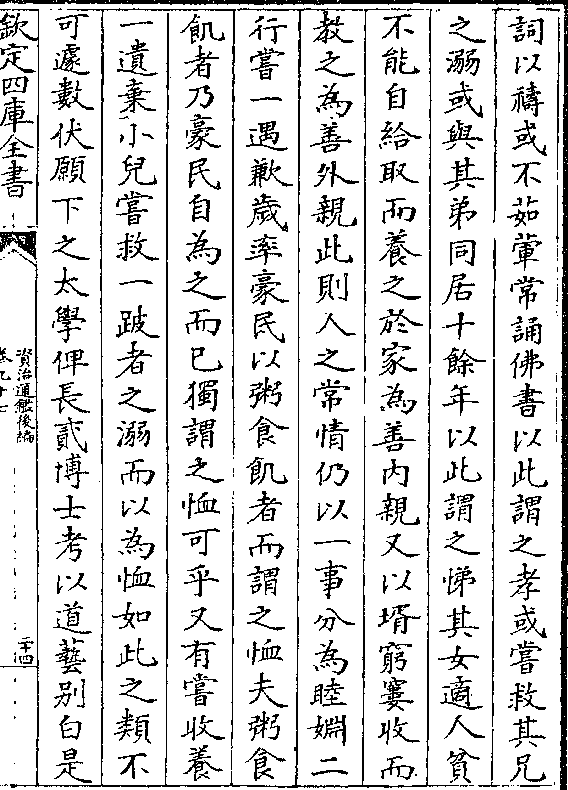 詞以禱或不茹葷常誦佛書以此謂之孝或嘗救其兄
之溺或與其弟同居十餘年以此謂之悌其女適人貧
不能自給取而養之於家為善内親又以壻窮窶收而
教之為善外親此則人之常情仍以一事分為睦婣二
行嘗一遇歉歲率豪民以粥食飢者而謂之恤夫粥食
飢者乃豪民自為之而已獨謂之恤可乎又有嘗收養
一遺棄小兒嘗救一跛者之溺而以為恤如此之類不
可遽數伏願下之太學俾長貳博士考以道藝别白是
欽定四庫全書
資治通鑑後編
卷九十七
二十四